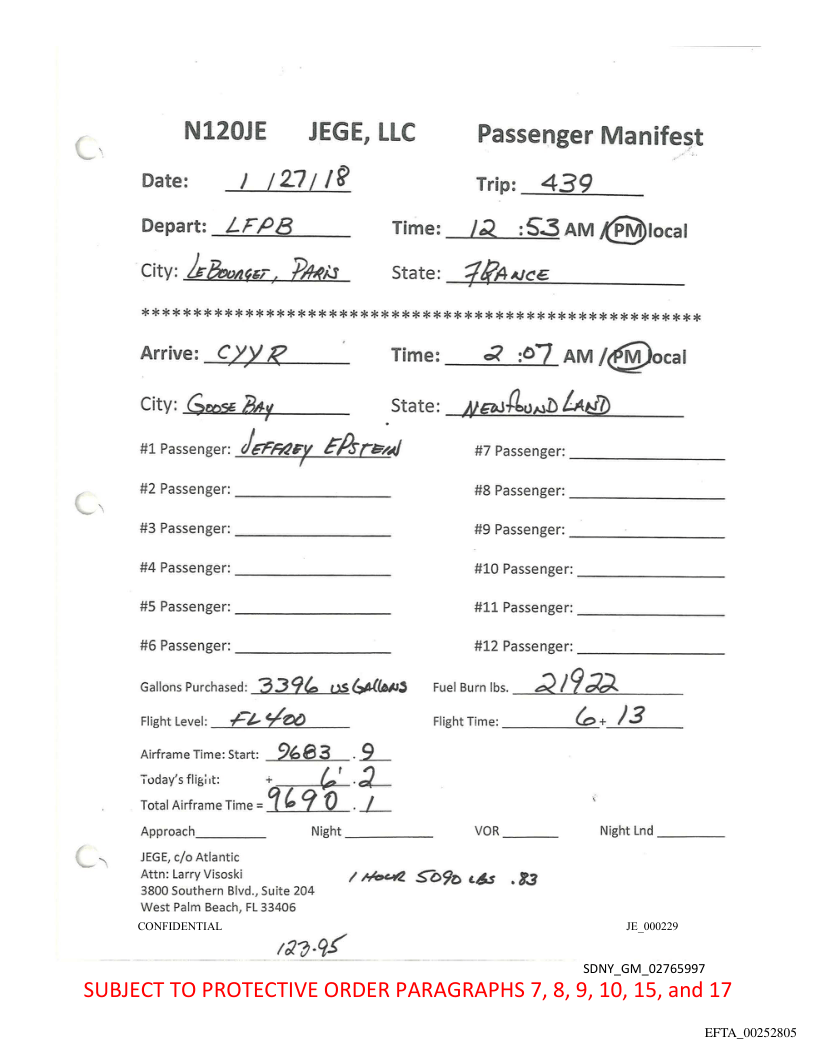 N120JE JEGE, LLC Passenger Manifest
Date: 1 / 27 / 18 Trip: 439
Depart: LFPB Time: 12 :53 AM / PM local
City: LeBourget, Paris State: FRANCE
******************************************************
Arrive: CYYR Time: 2 :07 AM / PM local
City: Goose Bay State: NewfoundLand
#1 Passenger: Jeffrey Epstein #7 Passenger:
#2 Passenger: #8 Passenger:
#3 Passenger: #9 Passenger:
#4 Passenger: #10 Passenger:
#5 Passenger: #11 Passenger:
#6 Passenger: #12 Passenger:
Gallons Purchased: 3396 US Gallons Fuel Burn lbs. 21922
Flight Level: FL400 Flight Time: 6 + 13
Airframe Time: Start: 9683 . 9
Today's flight: + 6 . 2
Total Airframe Time = 9690 . 1
Approach Night VOR Night Lnd
JEGE, c/o Atlantic
Attn: Larry Visoski 1 Hour 5090 Lbs .83
3800 Southern Blvd., Suite 204
West Palm Beach, FL 33406
CONFIDENTIAL JE_000229
123.95
SDNY_GM_02765997
SUBJECT TO PROTECTIVE ORDER PARAGRAPHS 7, 8, 9, 10, 15, and 17
EFTA_00252805